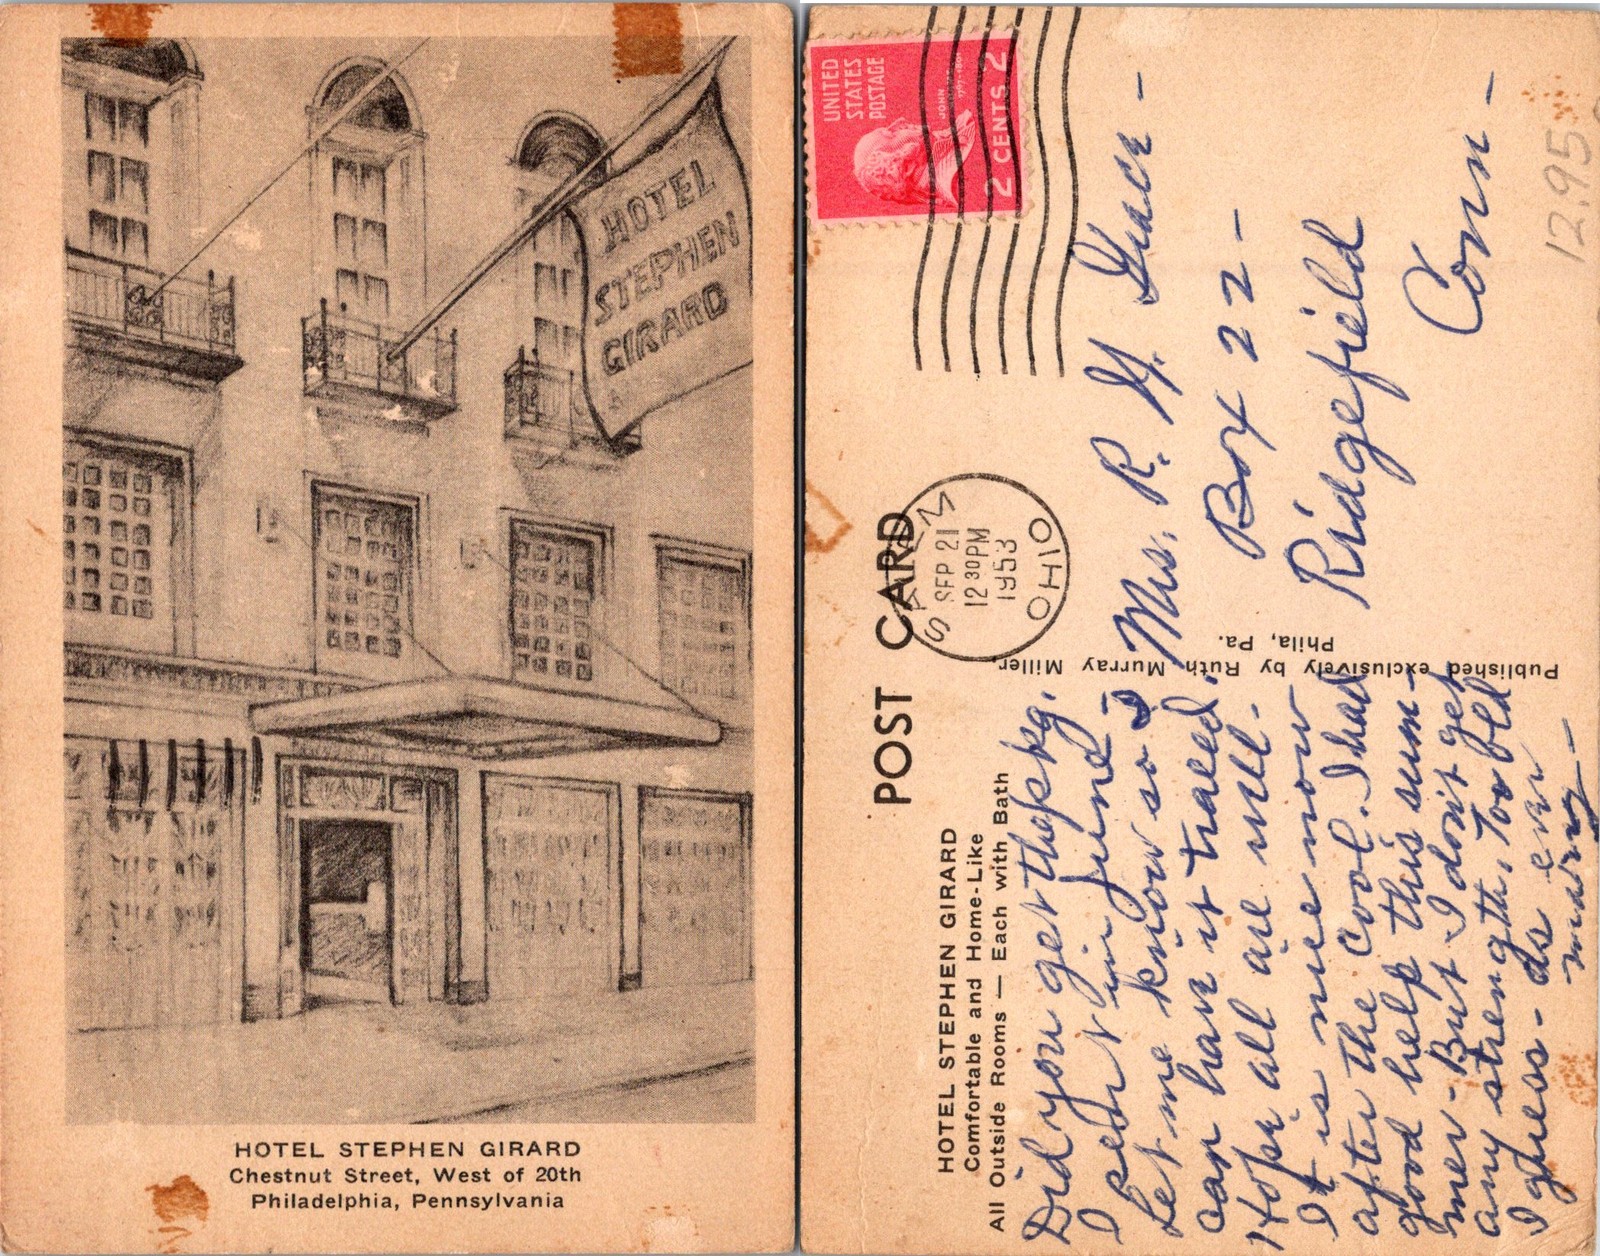 HOTEL
STEPHEN
GIRARD
HOTEL STEPHEN GIRARD
Chestnut Street, West of 20th
Philadelphia, Pennsylvania
POST CARD
UNITED
STATES
POSTAGE
JOHN
2 CENTS 2
SALEM
SEP 21
12 30 PM
1953
OHIO
HOTEL STEPHEN GIRARD
Comfortable and Home-Like
All Outside Rooms — Each with Bath
Did you get the pkg.
I sent in June -
Let me know so I
can have it traced.
Hope all are well.
It is nice now
after the cool. I had
good help this sum-
mer - But I don't get
any strength, too old
I guess - As ever
Mary -
Published exclusively by Ruth Murray Miller,
Phila, Pa.
Mrs. R. H. Grace -
Box 22 -
Ridgefield
Conn -
12.95